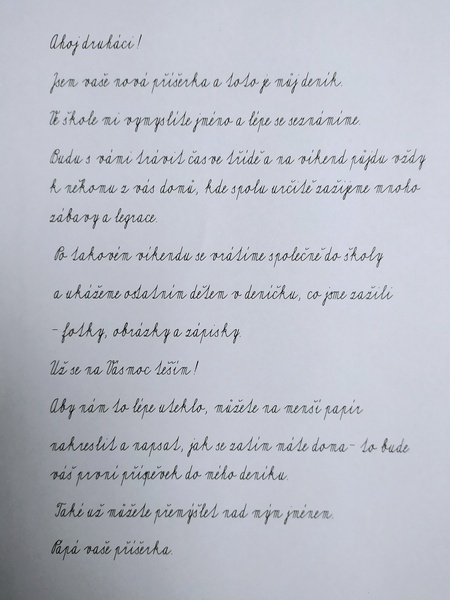 Ahoj druháci!
Jsem vaše nová příšerka a toto je můj deník.
Ve škole mi vymyslíte jméno a lépe se seznámíme.
Budu s vámi trávit čas ve třídě a na víkend půjdu vždy
k někomu z vás domů, kde spolu určitě zažijeme mnoho
zábavy a legrace.
Po takovém víkendu se vrátíme společně do školy
a ukážeme ostatním dětem v deníčku, co jsme zažili
- fotky, obrázky a zápisky.
Už se na Vás moc těším!
Aby nám to lépe uteklo, můžete na menší papír
nakreslit a napsat, jak se zatím máte doma - to bude
váš první příspěvek do mého deníku.
Také už můžete přemýšlet nad mým jménem.
Papá vaše příšerka.